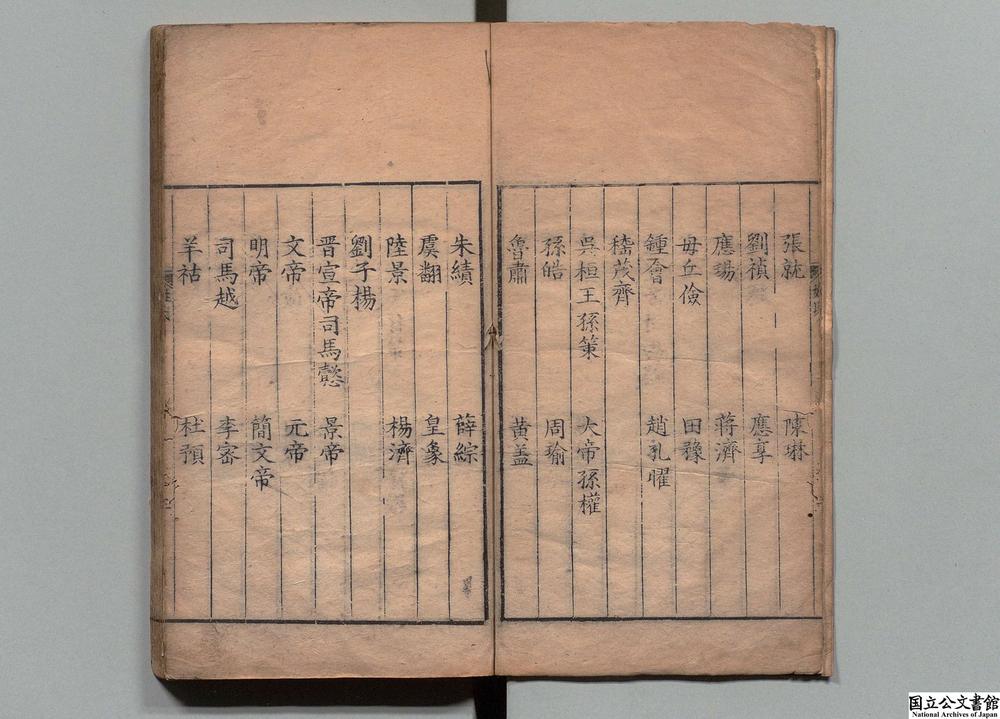 張紞 陳琳
劉禎 應享
應瑒 蔣濟
毋丘儉 田豫
鍾會 趙孔曜
嵇茂齊
吳桓王孫策 大帝孫權
孫皓 周瑜
魯肅 黃盖
朱績 薛綜
虞翻 皇象
陸景 楊濟
劉子楊
晋宣帝司馬懿 景帝
文帝 元帝
明帝 簡文帝
司馬越 李密
羊祜 杜預
国立公文書館
National Archives of Japan